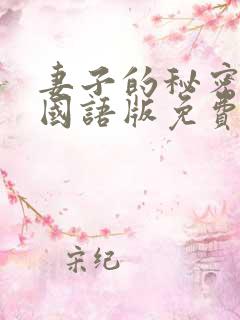 妻子的秘密
國語版免費
宋纪